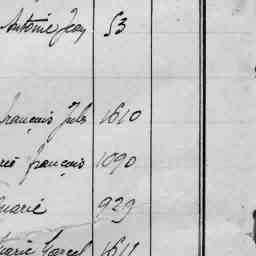 Antoine Jean 53
François Jules 1610
François 1090
Marie 929
Marie Marcel 1611